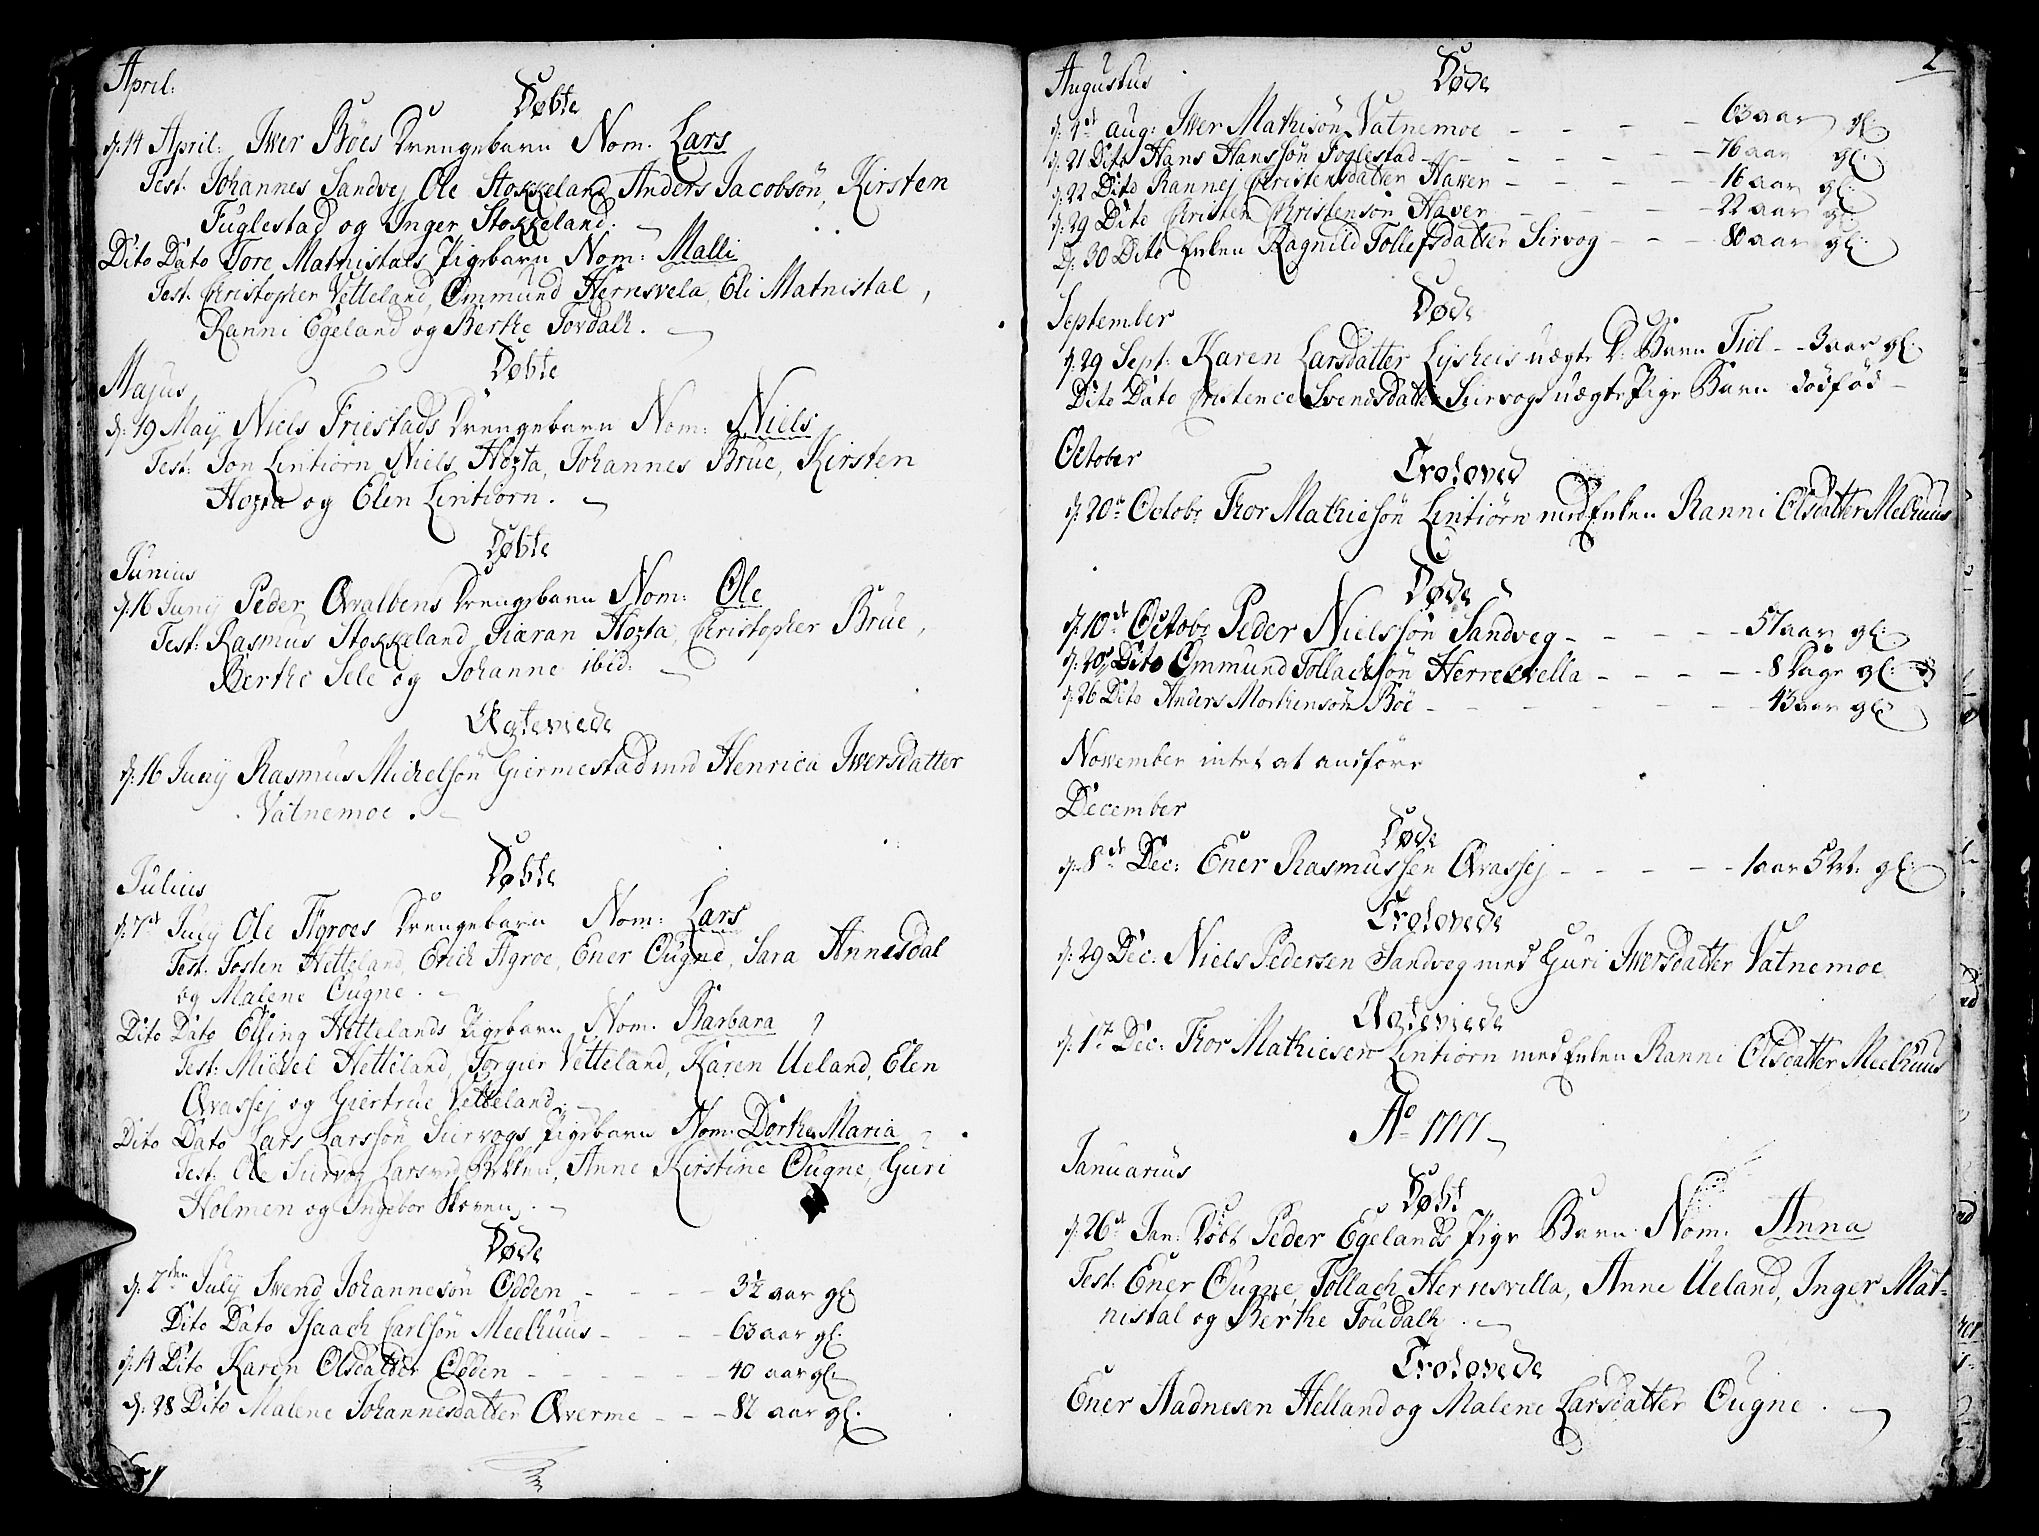 April:
Døbte
d: 14 April: Iver Böes Drengebarn Nom. Lars
Test. Johannes Sandvej Ole Stokkeland Anders Jacobsön, Kirsten
Fuglestad og Inger Stokkeland.
Dito Dato Tore Matnistals Pigebarn Nom: Malli
Test. Christopher Vetteland, Ommund Herresvela, Eli Matnistal,
Ranni Egeland og Berthe Tordalk.
Døbte
Majus
d: 19 May Niels Friestads Drengebarn Nom: Niels
Test: Jon Lintiorn, Niels Hozta, Johannes Brue, Kirsten
Hozta og Elen Lintiorn.
Døbte
Junius
d: 16 Junij Peder Qvalbens Drengebarn Nom: Ole
Test: Rasmus Stokkeland, Piaran Hozta, Christopher Brue,
Berthe Sele og Johanne ibid:
Ægteviede
d: 16 Junij Rasmus Michelsön Giermestad med Henrica Iwersdatter
Vatnemoe.
Døbte
Julius
d: 7de July Ole Agroes Drengebarn Nom: Lars
Test. Josten Hetteland, Erich Agroe, Ener Ougne, Sara Annesdal
og Malene Ougne.
Dito Dato Elling Hettelands Pigebarn Nom. Barbara
Test: Michel Hetteland, Torgier Vetteland, Karen Ueland, Elen
Qvassej og Giertrue Vetteland.
Dito Dato Lars Larssön Siervogs Pigebarn Nom: Dorthe Maria
Test. Ole Survog Lars ved Bekken, Anne Kirstine Ougne, Guri
Holmen og Ingebor Skoven.
Døde
d: 7den July Swend Johannesön Odden - - - 3½ aar gl:
Dito Dato Isaach Carlsön Meelhuus - - - 63 aar gl:
d: 14 Dito Karen Olsdatter Odden - - - 40 aar gl:
d: 28 Dito Malene Johannesdatter Qverme - - - 82 aar gl:
2
Augustus
Døde
d: 1de aug: Iver Mathisön Vatnemoe - - - - 63 aar gl:
d: 21 Dito Hans Hanssön Foglestad - - - - 76 aar gl:
d: 22 Dito Rannej Christensdatter Haver - - - - 16 aar gl:
d: 29 Dito Christen Christensön Haver - - - - 22 aar gl:
d: 30 Dito Enken Ragnild Tollefsdatter Sirvog - - - 80 aar gl:
September
Døde
d: 29 Sept: Karen Larsdatter Lysheis uægte D: Barn Tiöl - - 3 aar gl:
Dito Dato Cristence Svendsdatter Siirvogs uægte Pige Barn dödfød
October
Troloved
d: 20de Octobr Thor Mathiesön Lintiörn med Enken Ranni Olsdatter Melhuus
Døde
d: 10de Octobr Peder Nielssön Sandveg - - - - 57 aar gl:
d: 20de Dito Ommund Tollachsön Herresvella - - - - 8 Dage gl:
d: 26 Dito Anders Mortensön Böe - - - - 43 aar gl:
November intet at anföre
December
Døde
d: 8de Dec: Ener Rasmussen Qvassej - - - - 1 aar 5 M: gl:
Trolovede
d: 29 Dec: Niels Pedersen Sandveg med Guri Iwersdatter Vatnemoe
Ægteviede
d: 1ste Dec: Thor Mathiesen Lintiorn med Enken Ranni Olsdatter Meelhuus
Ao 1777
Januarius
Døbt
d: 26de Jan: Döbt Peder Egelands Pige Barn Nom. Anna
Test: Ener Ougne, Tollach Herresvilla, Anne Ueland, Inger Mat-
nistal og Berthe Toudalk.
Trolovede
Ener Aadnesen Helland og Malene Larsdatter Ougne.